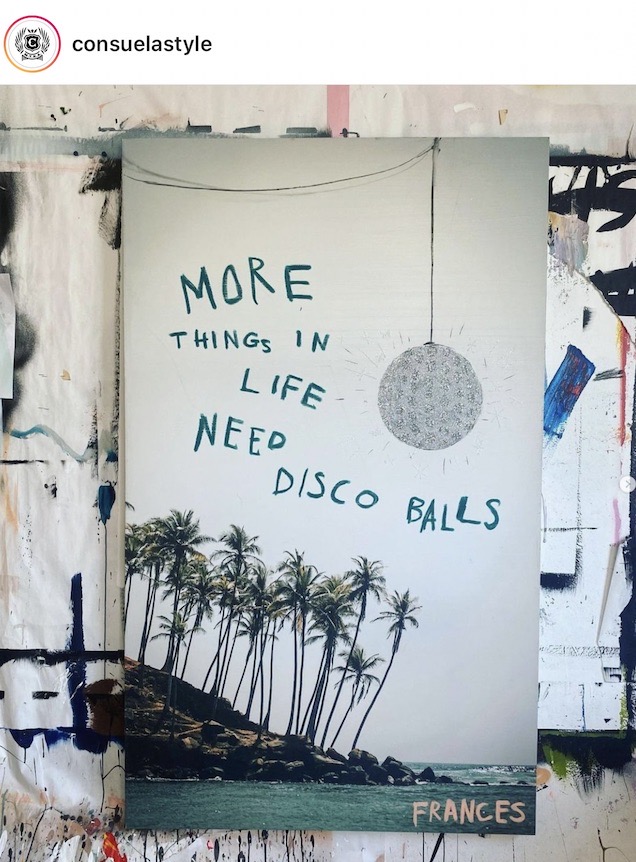 consuelastyle
MORE
THINGS IN
LIFE
NEED
DISCO BALLS
FRANCES